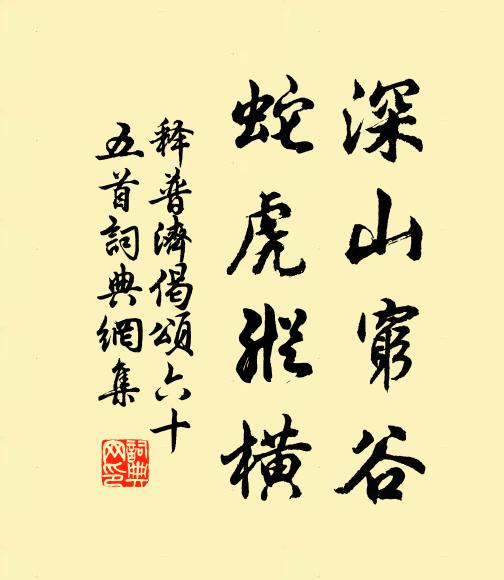 深山窮谷
蛇虎縱橫
释普濟偈頌六十
五首詞典網集
詞典
网印